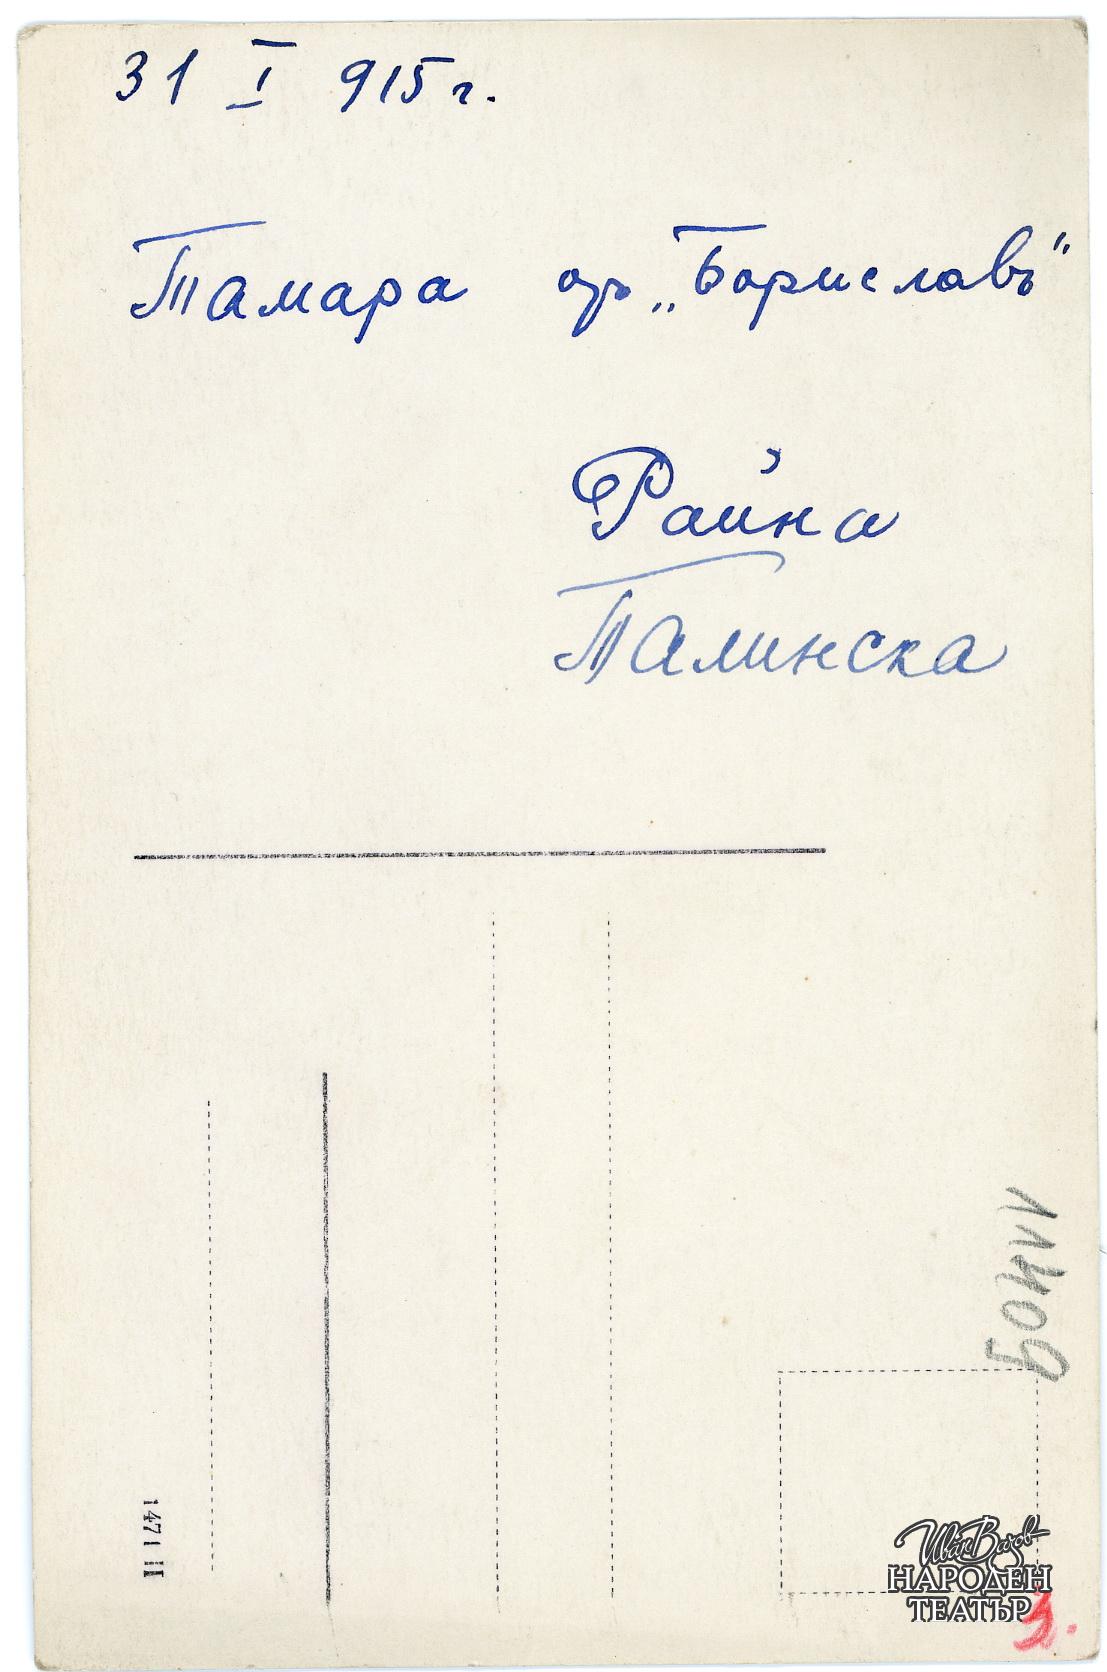 31 I 915 г.
Тамара отъ „Бориславъ“
Райна
Талинска
11409
1471 II
Иван Вазов
НАРОДЕН
ТЕАТЪР
3.